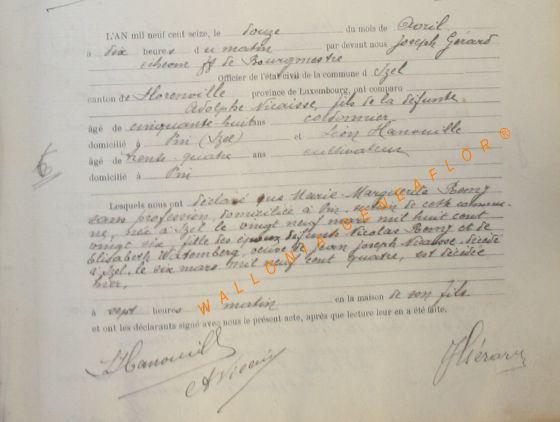 L'AN mil neuf cent seize, le douze du mois de Avril
à dix heures du matin par devant nous Joseph Gérard
échevin ff de Bourgmestre
Officier de l'état civil de la commune d'Izel
canton de Florenville province de Luxembourg, ont comparu
Adolphe Nicaisse, fils de la défunte
âgé de cinquante-huit ans cordonnier
domicilié à Pin (Izel) et Léon Hanouille
âgé de trente-quatre ans cultivateur
domicilié à Pin
6
Lesquels nous ont déclaré que Marie-Marguerite Remy
sans profession, domiciliée à Pin, section de cette commu-
ne, née à Izel le vingt neuf mars mil huit cent
vingt six, fille des époux défunts Nicolas Remy et de
Elisabeth Watemberg, veuve de Jean Joseph Nicaisse décédé
à Izel, le six mars mil neuf cent quatre, est décédée
hier,
à sept heures matin en la maison de son fils
et ont les déclarants signé avec nous le présent acte, après que lecture leur en a été faite.
LHanouille
A Nicais
JGérard
WALLONIA GENEAFLOR ®